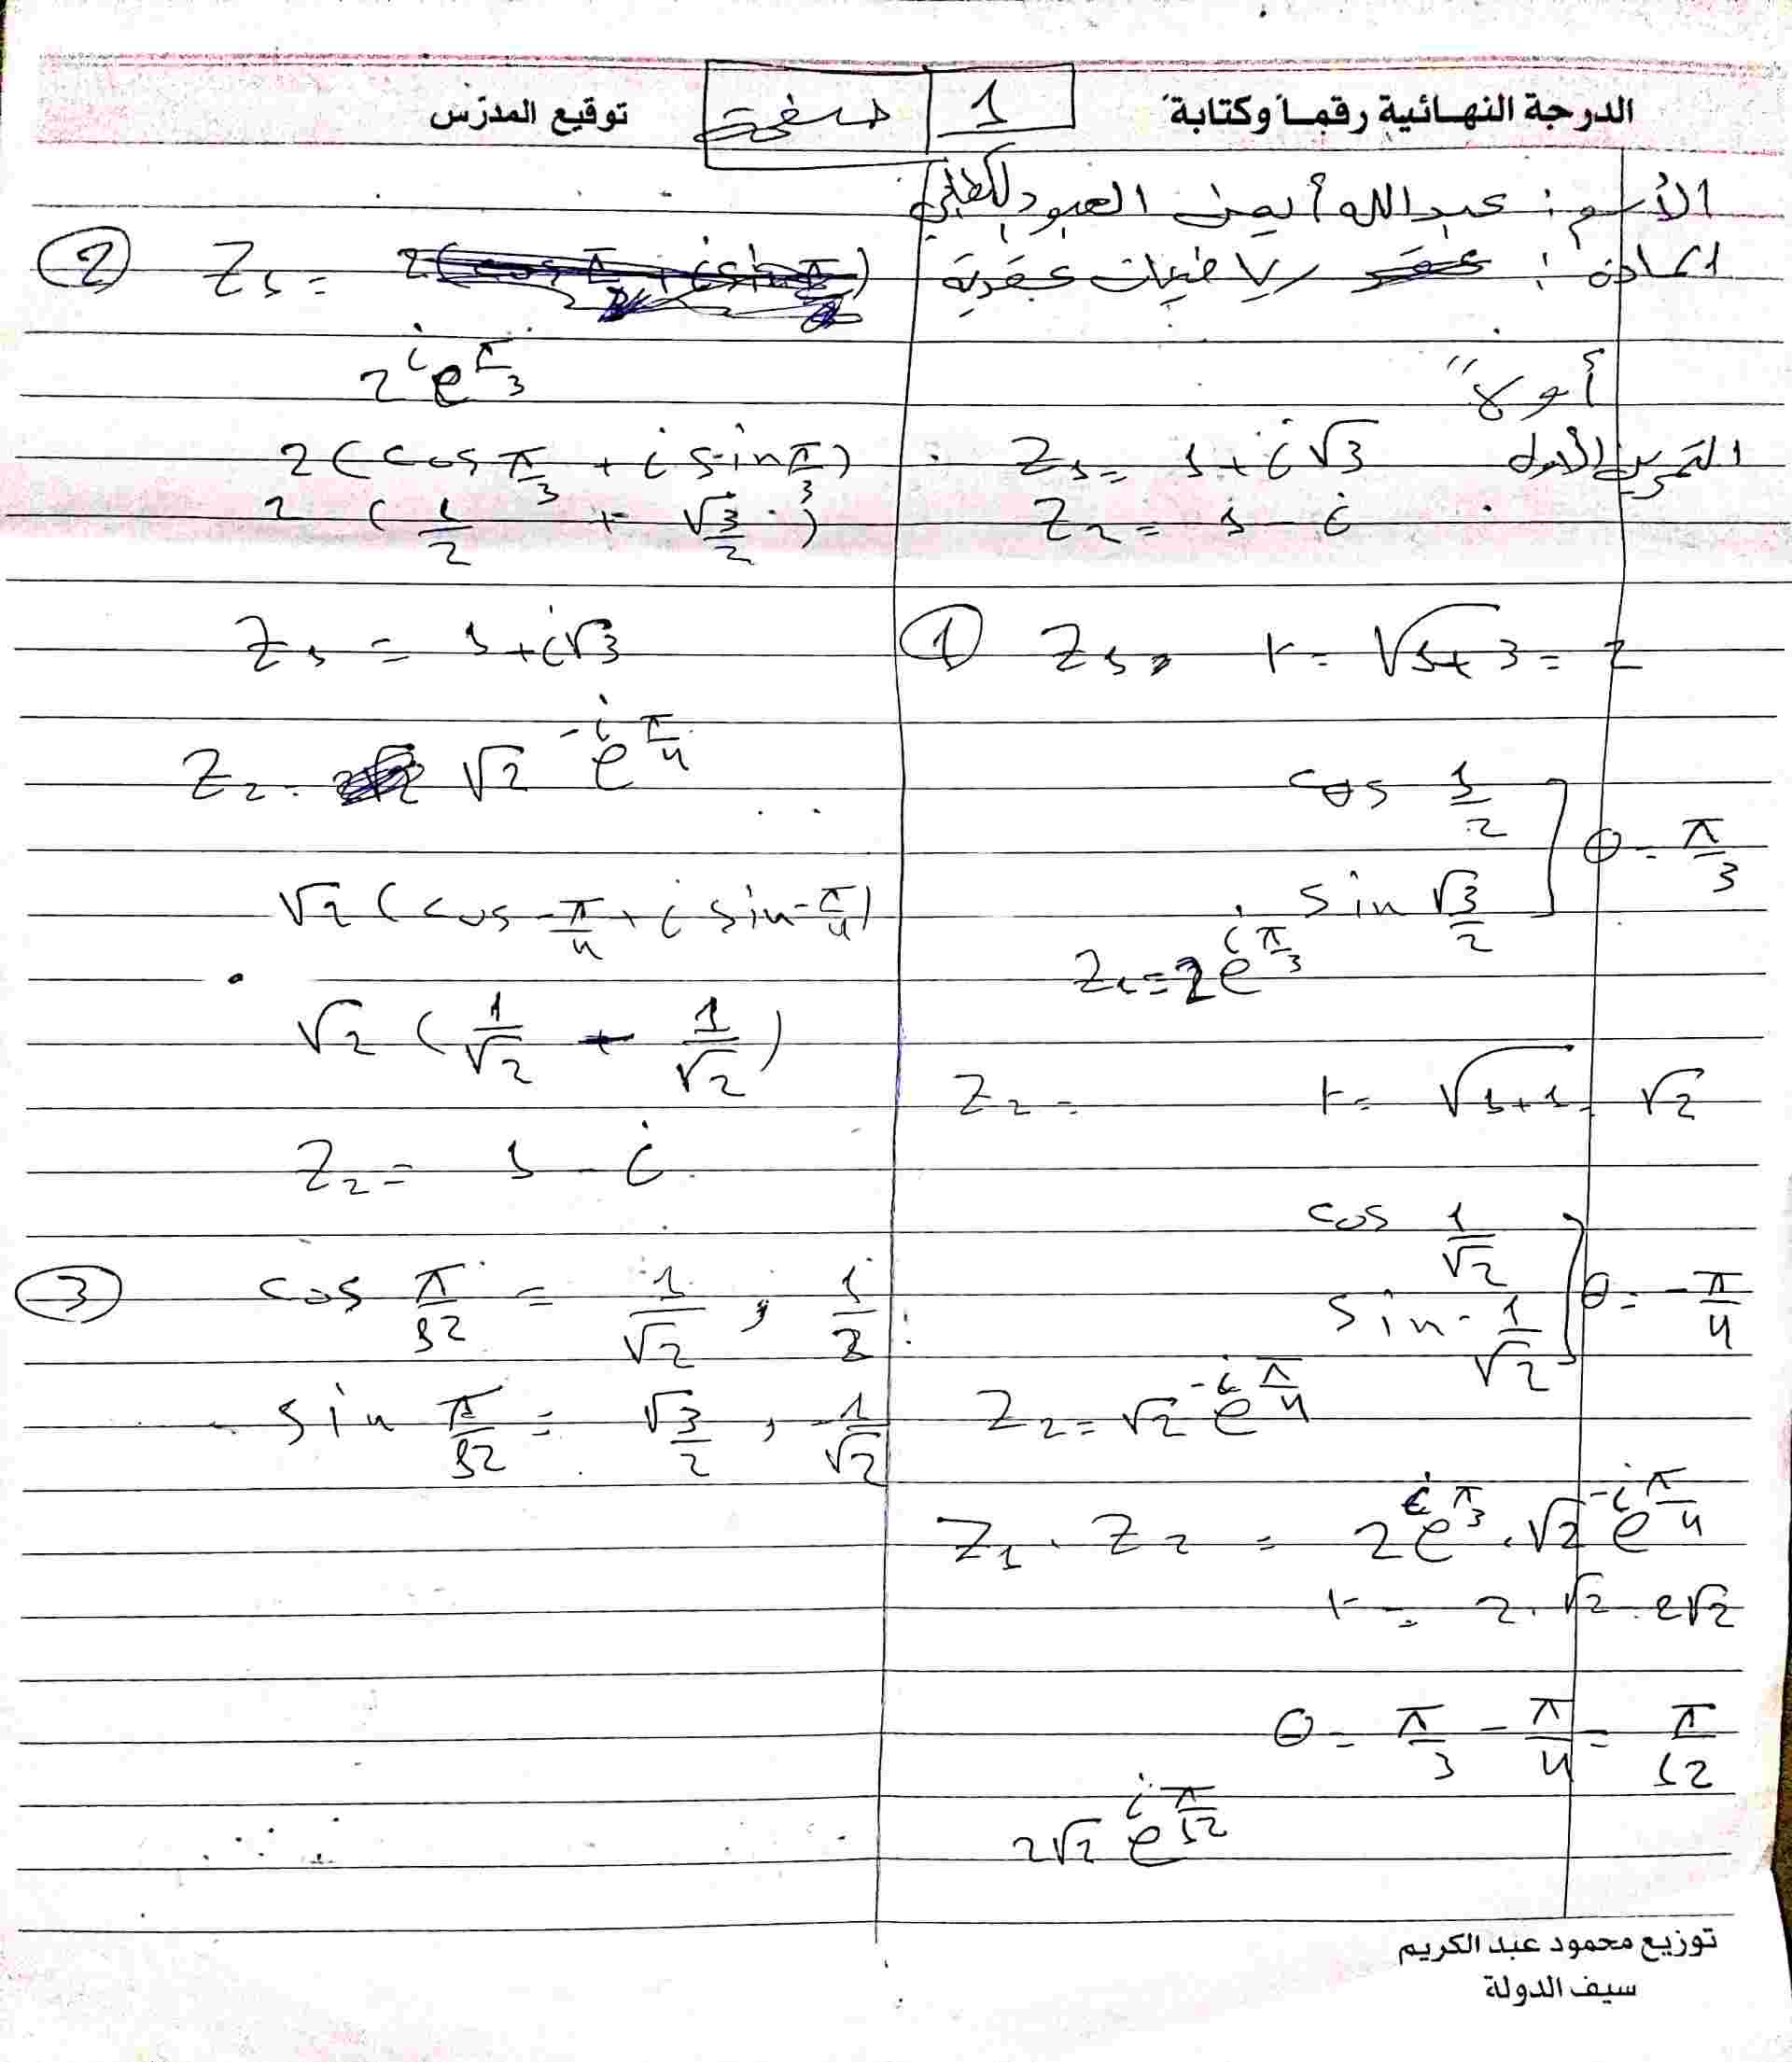 الدرجة النهائية رقماً وكتابة
1 صفحة
توقيع المدرّس
الأسم : عبدالله أيمن العبود
المادة : رياضيات عقدية
أولا"
التمرين الأول
Z₁ = 1 + i√3
Z₂ = 1 - i
① Z₁, r = √1+3 = 2
cos 1/2
sin √3/2
θ = π/3
Z₁ = 2 e^iπ/3
Z₂ = r = √1+1 = √2
cos 1/√2
sin - 1/√2
θ = - π/4
Z₂ = √2 e^-iπ/4
Z₁ . Z₂ = 2 e^iπ/3 . √2 e^-iπ/4
r = 2 . √2 = 2√2
θ = π/3 - π/4 = π/12
2√2 e^iπ/12
② Z₁ =
2 e^iπ/3
2 (cos π/3 + i sin π/3)
2 (1/2 + √3/2 i)
Z₁ = 1 + i√3
Z₂ = √2 e^-iπ/4
√2 (cos -π/4 + i sin -π/4)
√2 (1/√2 - 1/√2)
Z₂ = 1 - i
③ cos π/12 = 1/√2 , 1/2
sin π/12 = √3/2 , -1/√2
توزيع محمود عبد الكريم
سيف الدولة